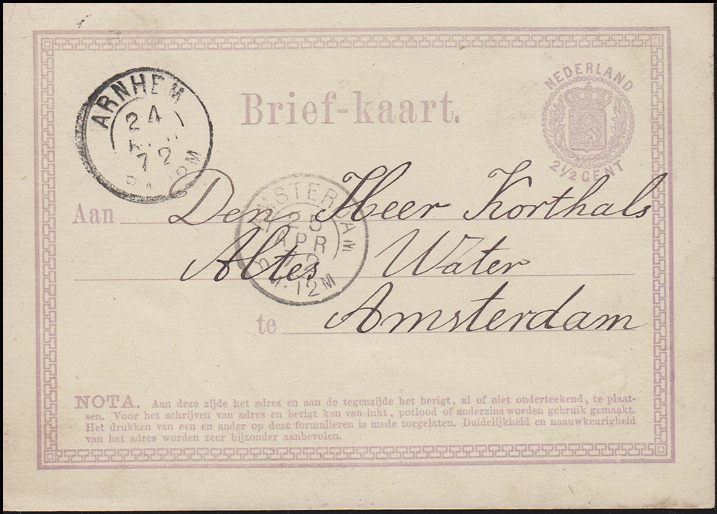 NEDERLAND
2½ CENT
Brief-kaart.
ARNHEM
24
72
AMSTERDAM
25
APR
72
M-12M
Aan Den Heer Korthals
Altes Water
te Amsterdam
NOTA. Aan deze zijde het adres en aan de tegenzijde het berigt, al of niet onderteekend, te plaat-
sen. Voor het schrijven van adres en berigt kan van inkt, potlood of anderzins worden gebruik gemaakt.
Het drukken van een en ander op deze formulieren is mede toegelaten. Duidelijkheid en naauwkeurigheid
van het adres worden zeer bijzonder aanbevolen.